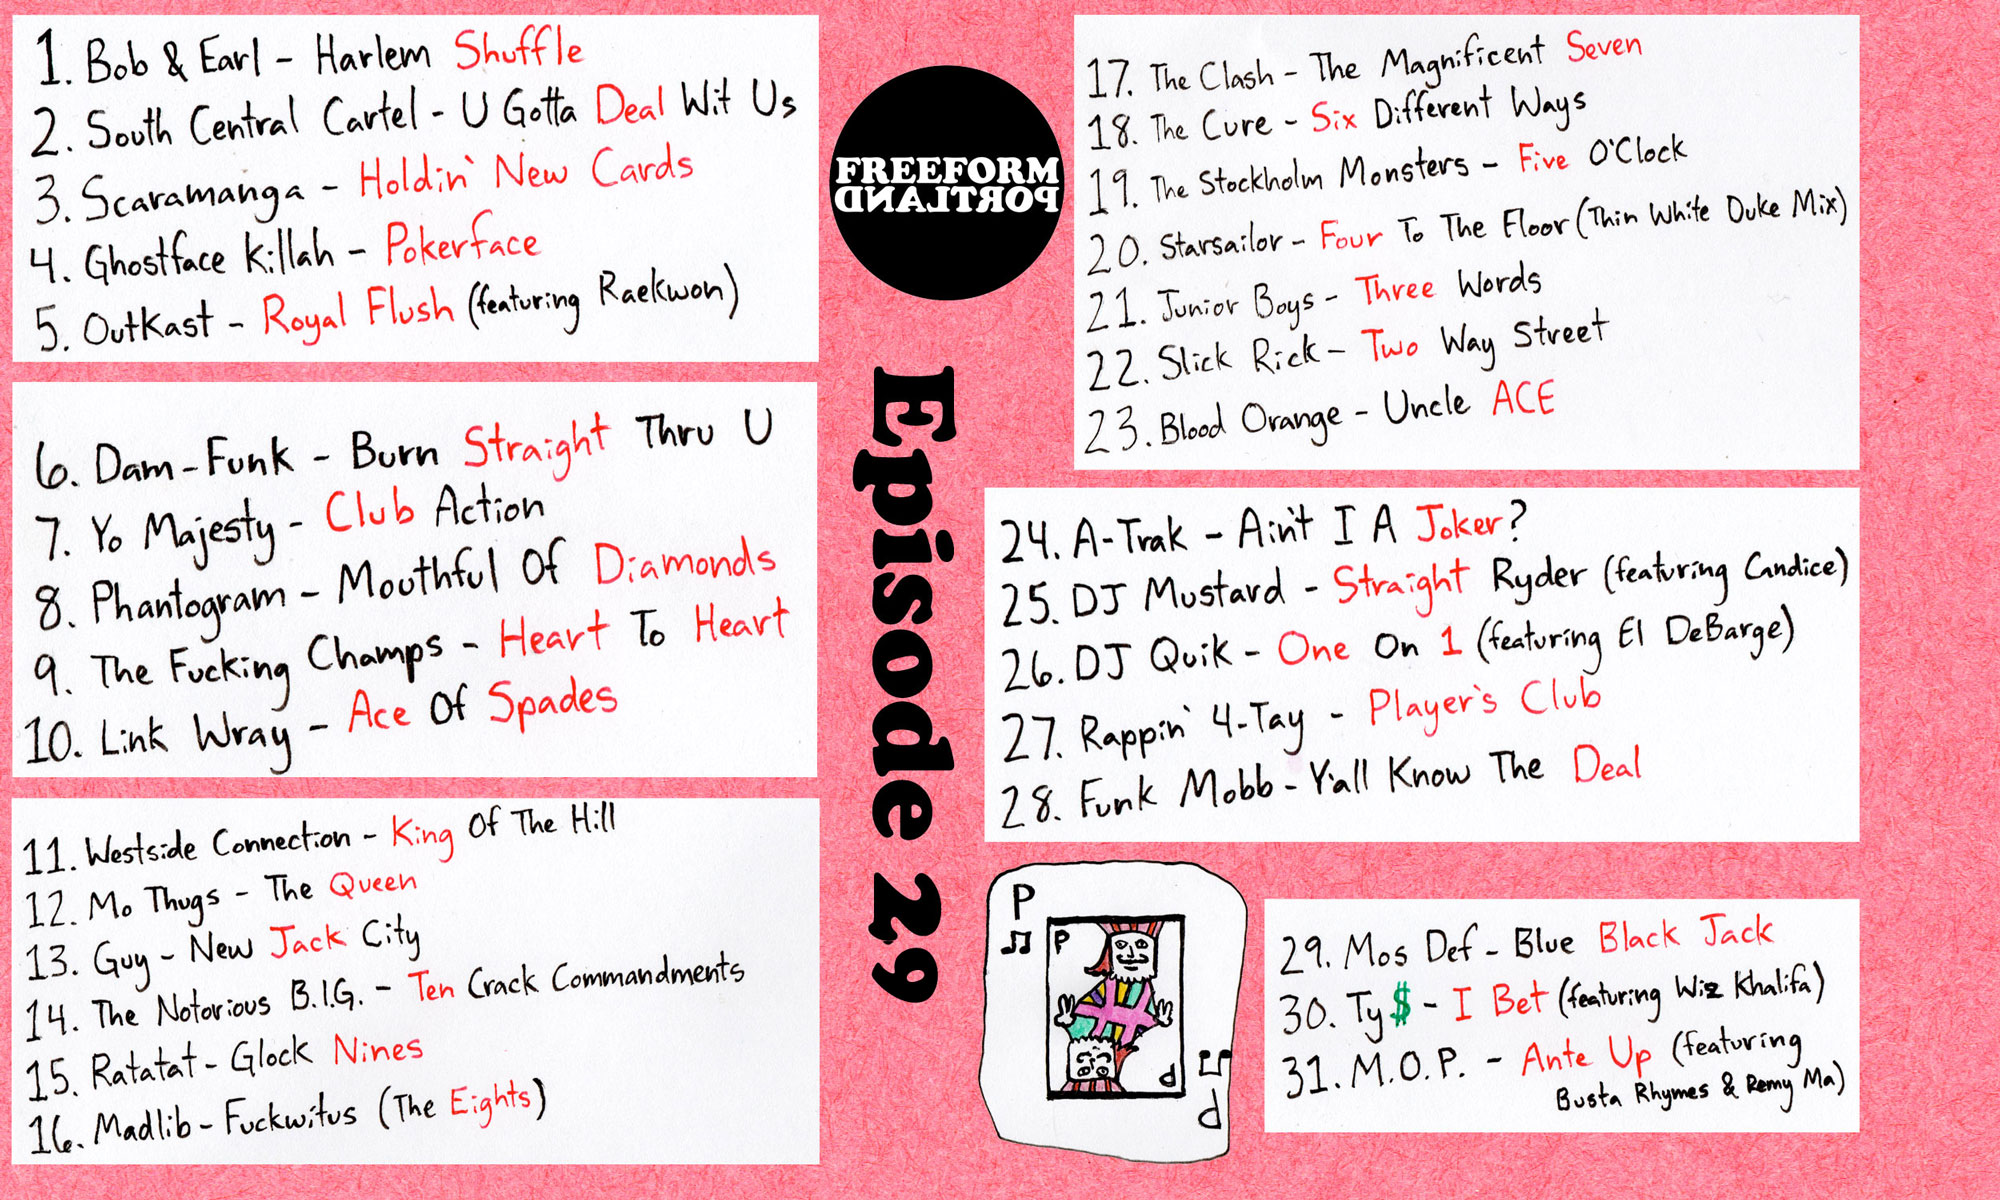 1. Bob & Earl - Harlem Shuffle
2. South Central Cartel - U Gotta Deal Wit Us
3. Scaramanga - Holdin' New Cards
4. Ghostface Killah - Pokerface
5. OutKast - Royal Flush (featuring Raekwon)
6. Dam-Funk - Burn Straight Thru U
7. Yo Majesty - Club Action
8. Phantogram - Mouthful Of Diamonds
9. The Fucking Champs - Heart To Heart
10. Link Wray - Ace Of Spades
11. Westside Connection - King Of The Hill
12. Mo Thugs - The Queen
13. Guy - New Jack City
14. The Notorious B.I.G. - Ten Crack Commandments
15. Ratatat - Glock Nines
16. Madlib - Fuckwitus (The Eights)
FREEFORM
PORTLAND
Episode 29
17. The Clash - The Magnificent Seven
18. The Cure - Six Different Ways
19. The Stockholm Monsters - Five O'Clock
20. Starsailor - Four To The Floor (Thin White Duke Mix)
21. Junior Boys - Three Words
22. Slick Rick - Two Way Street
23. Blood Orange - Uncle ACE
24. A-Trak - Ain't I A Joker?
25. DJ Mustard - Straight Ryder (featuring Candice)
26. DJ Quik - One On 1 (featuring El DeBarge)
27. Rappin' 4-Tay - Player's Club
28. Funk Mobb - Y'all Know The Deal
P
P
P
P
29. Mos Def - Blue Black Jack
30. Ty$ - I Bet (featuring Wiz Khalifa)
31. M.O.P. - Ante Up (featuring
Busta Rhymes & Remy Ma)